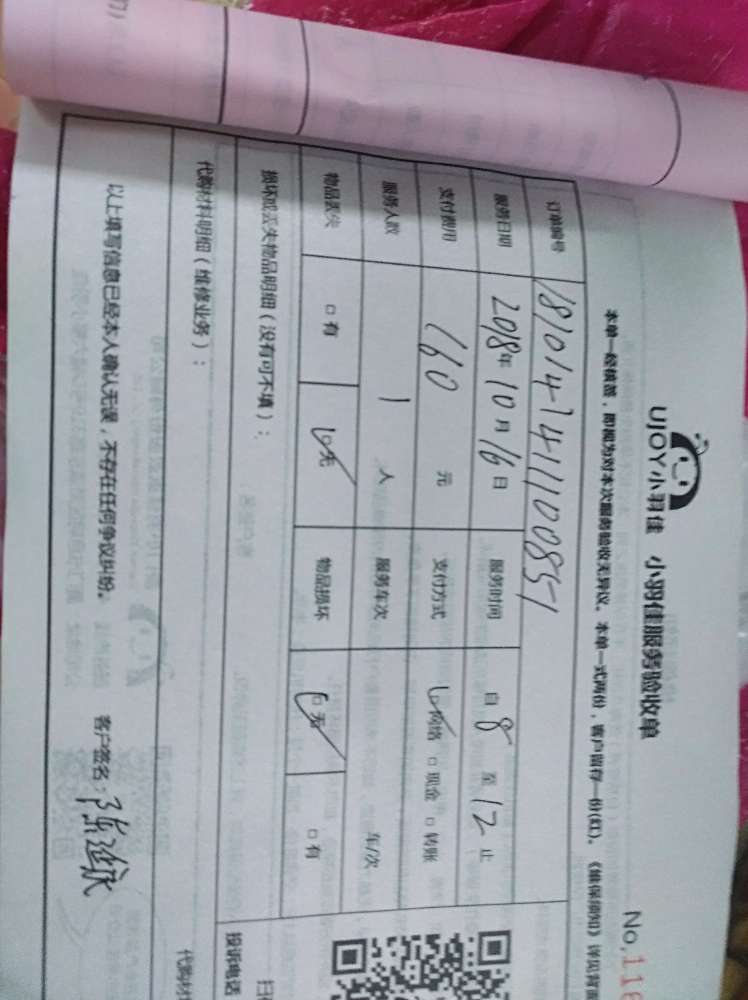 UJOY小羽佳 小羽佳服务验收单
No.118
本单一经核签，即视为对本次服务验收无异议。本单一式两份，客户留存一份(红)。《维保须知》详见背面
订单编号 18101474111100851
服务日期 2018年10月16日 服务时间 自8至12止
支付费用 160元 支付方式 □网络 □现金 □转账
服务人数 1人 服务车次 车/次
物品丢失 □有 □无 物品损坏 □无 □有
损坏或丢失物品明细（没有可不填）：
投诉电话
代购材料明细（维修业务）：
以上填写信息已经本人确认无误，不存在任何争议纠纷。 客户签名：